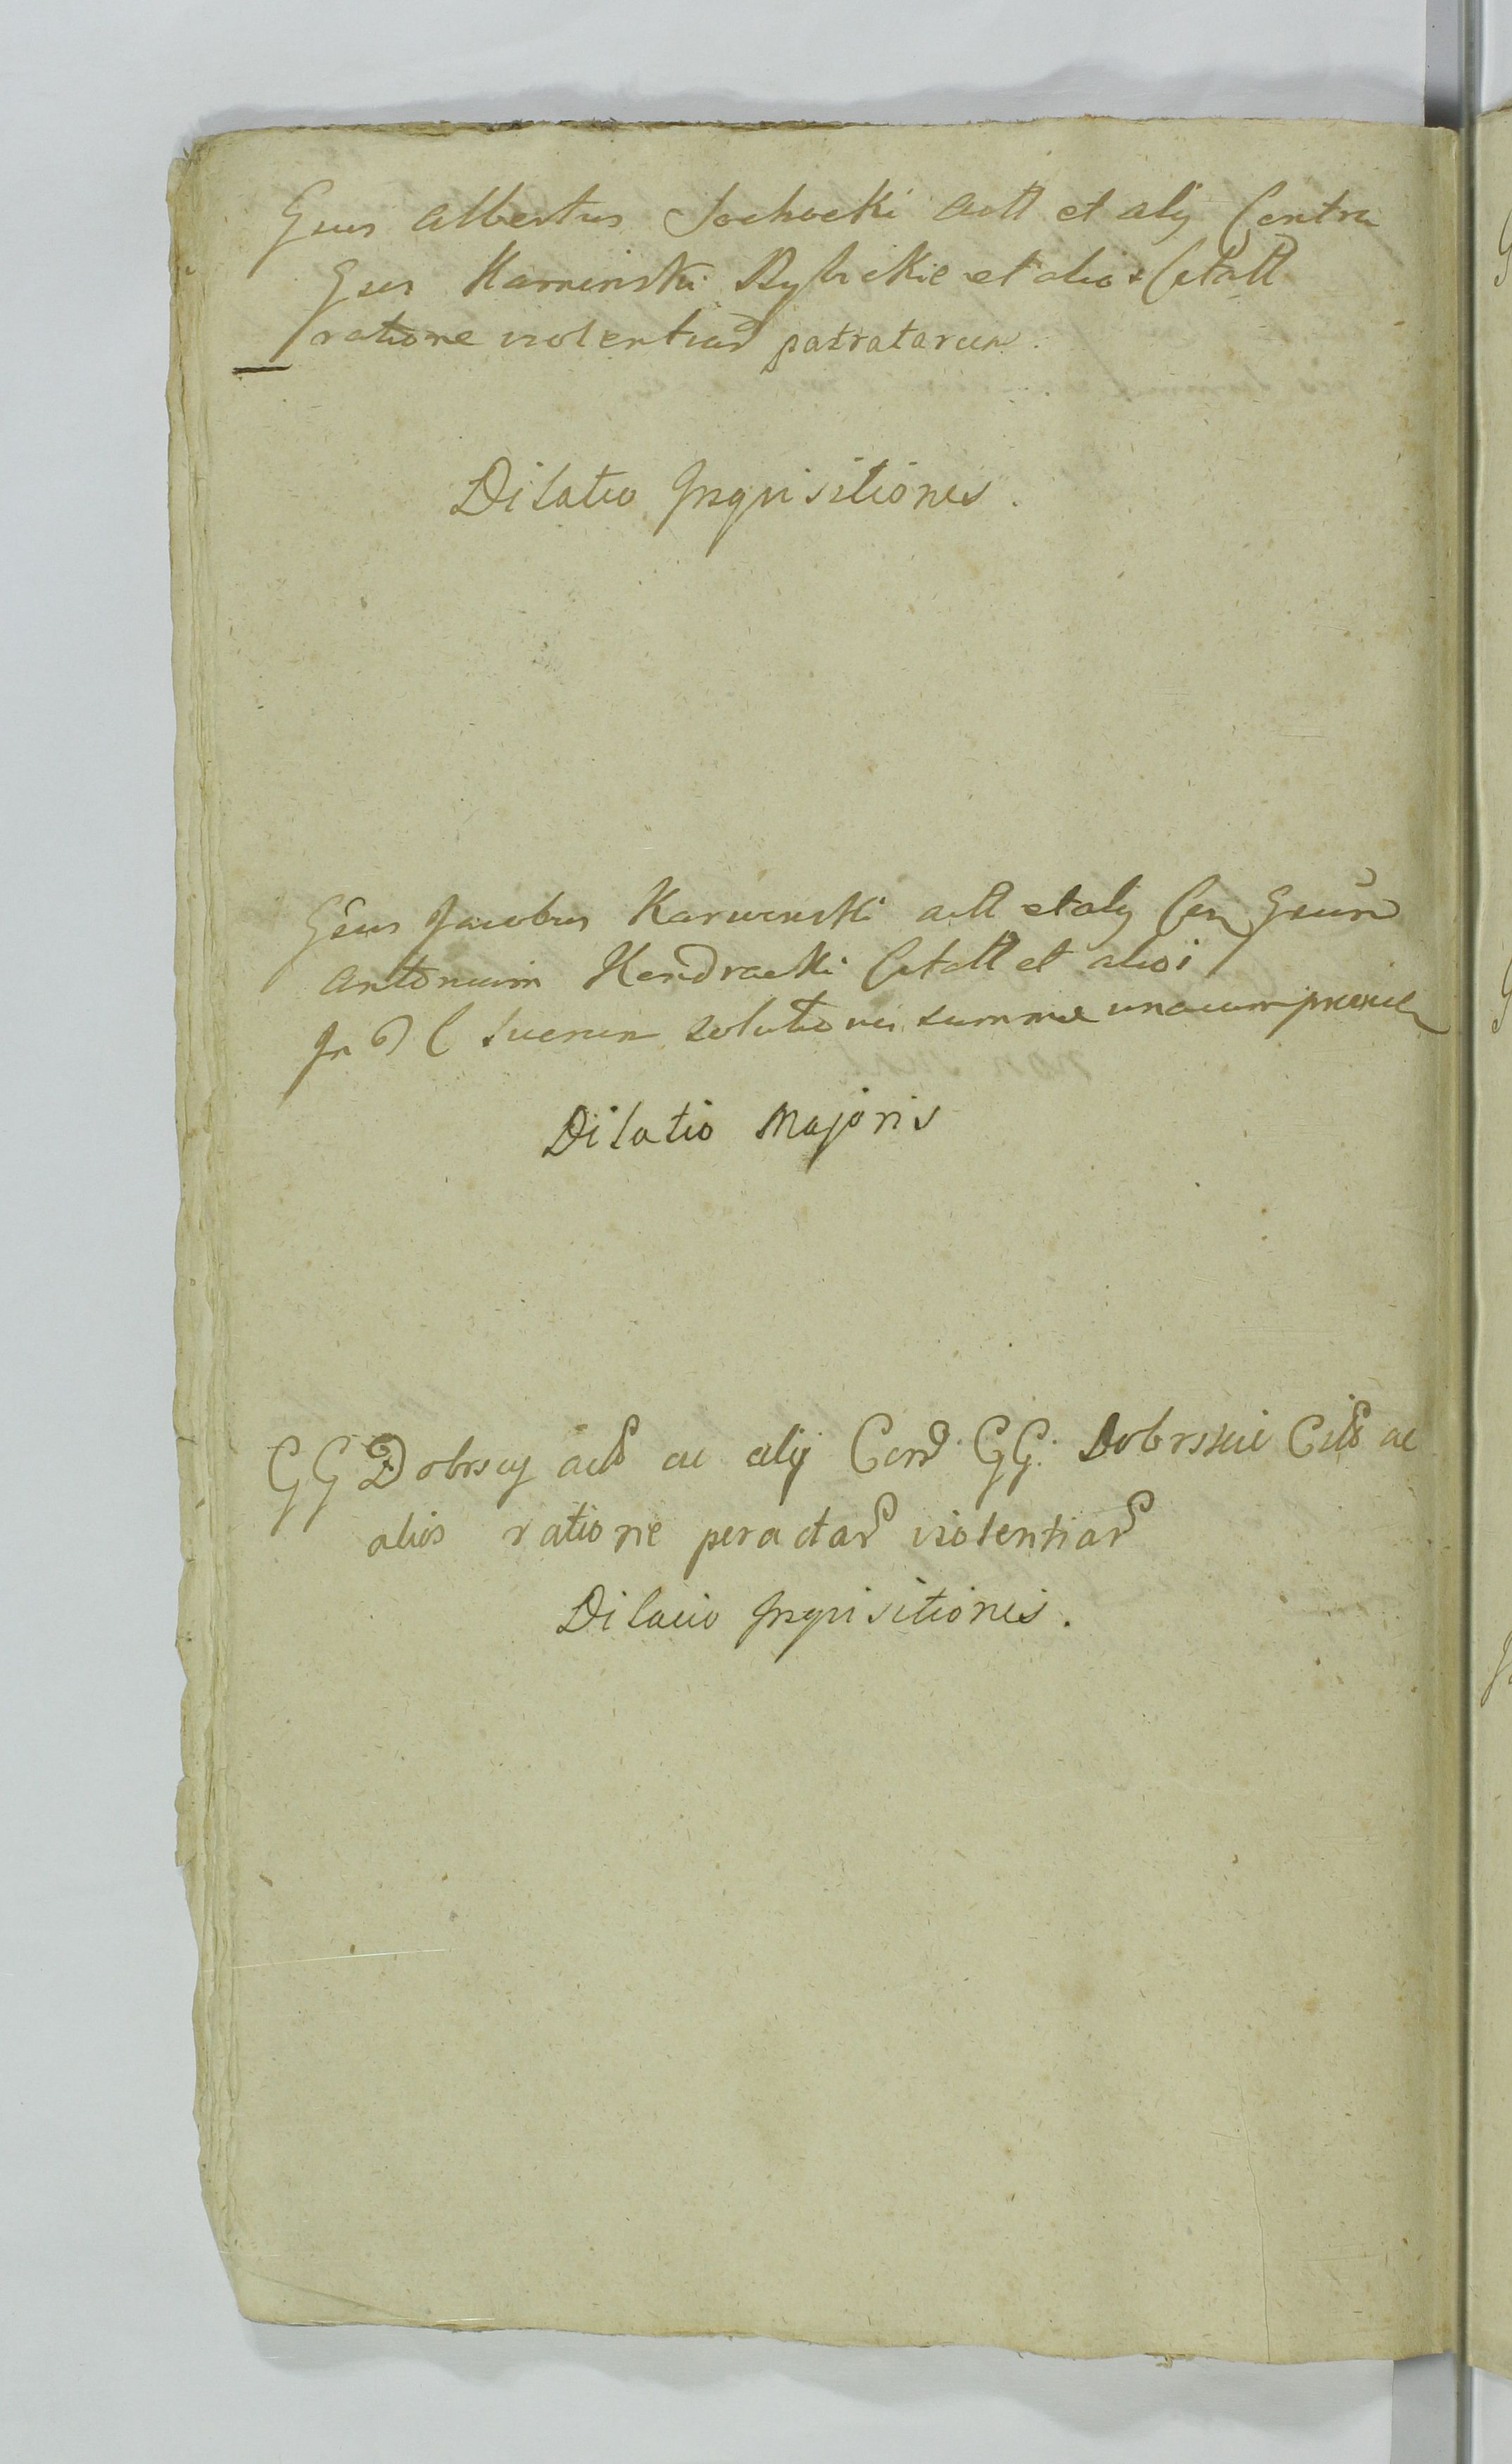 Gnus Albertus Sochocki Actt et alij Contra
Gsos Kaminski Rybickie et alios Citatt
ratione violentiar patratarum.
Dilatio Inquisitionis.
Gsus Jacobus Karwinski actt et alij Con Gsum
Antonium Kendracki Citatt et alios
solutionis summae unacum
Dilatio Majoris
GG Dobrscy act ac alij Con GG. Dobrskie Cit ac
alios ratione peractar violentiar
Dilacio Inquisitionis.